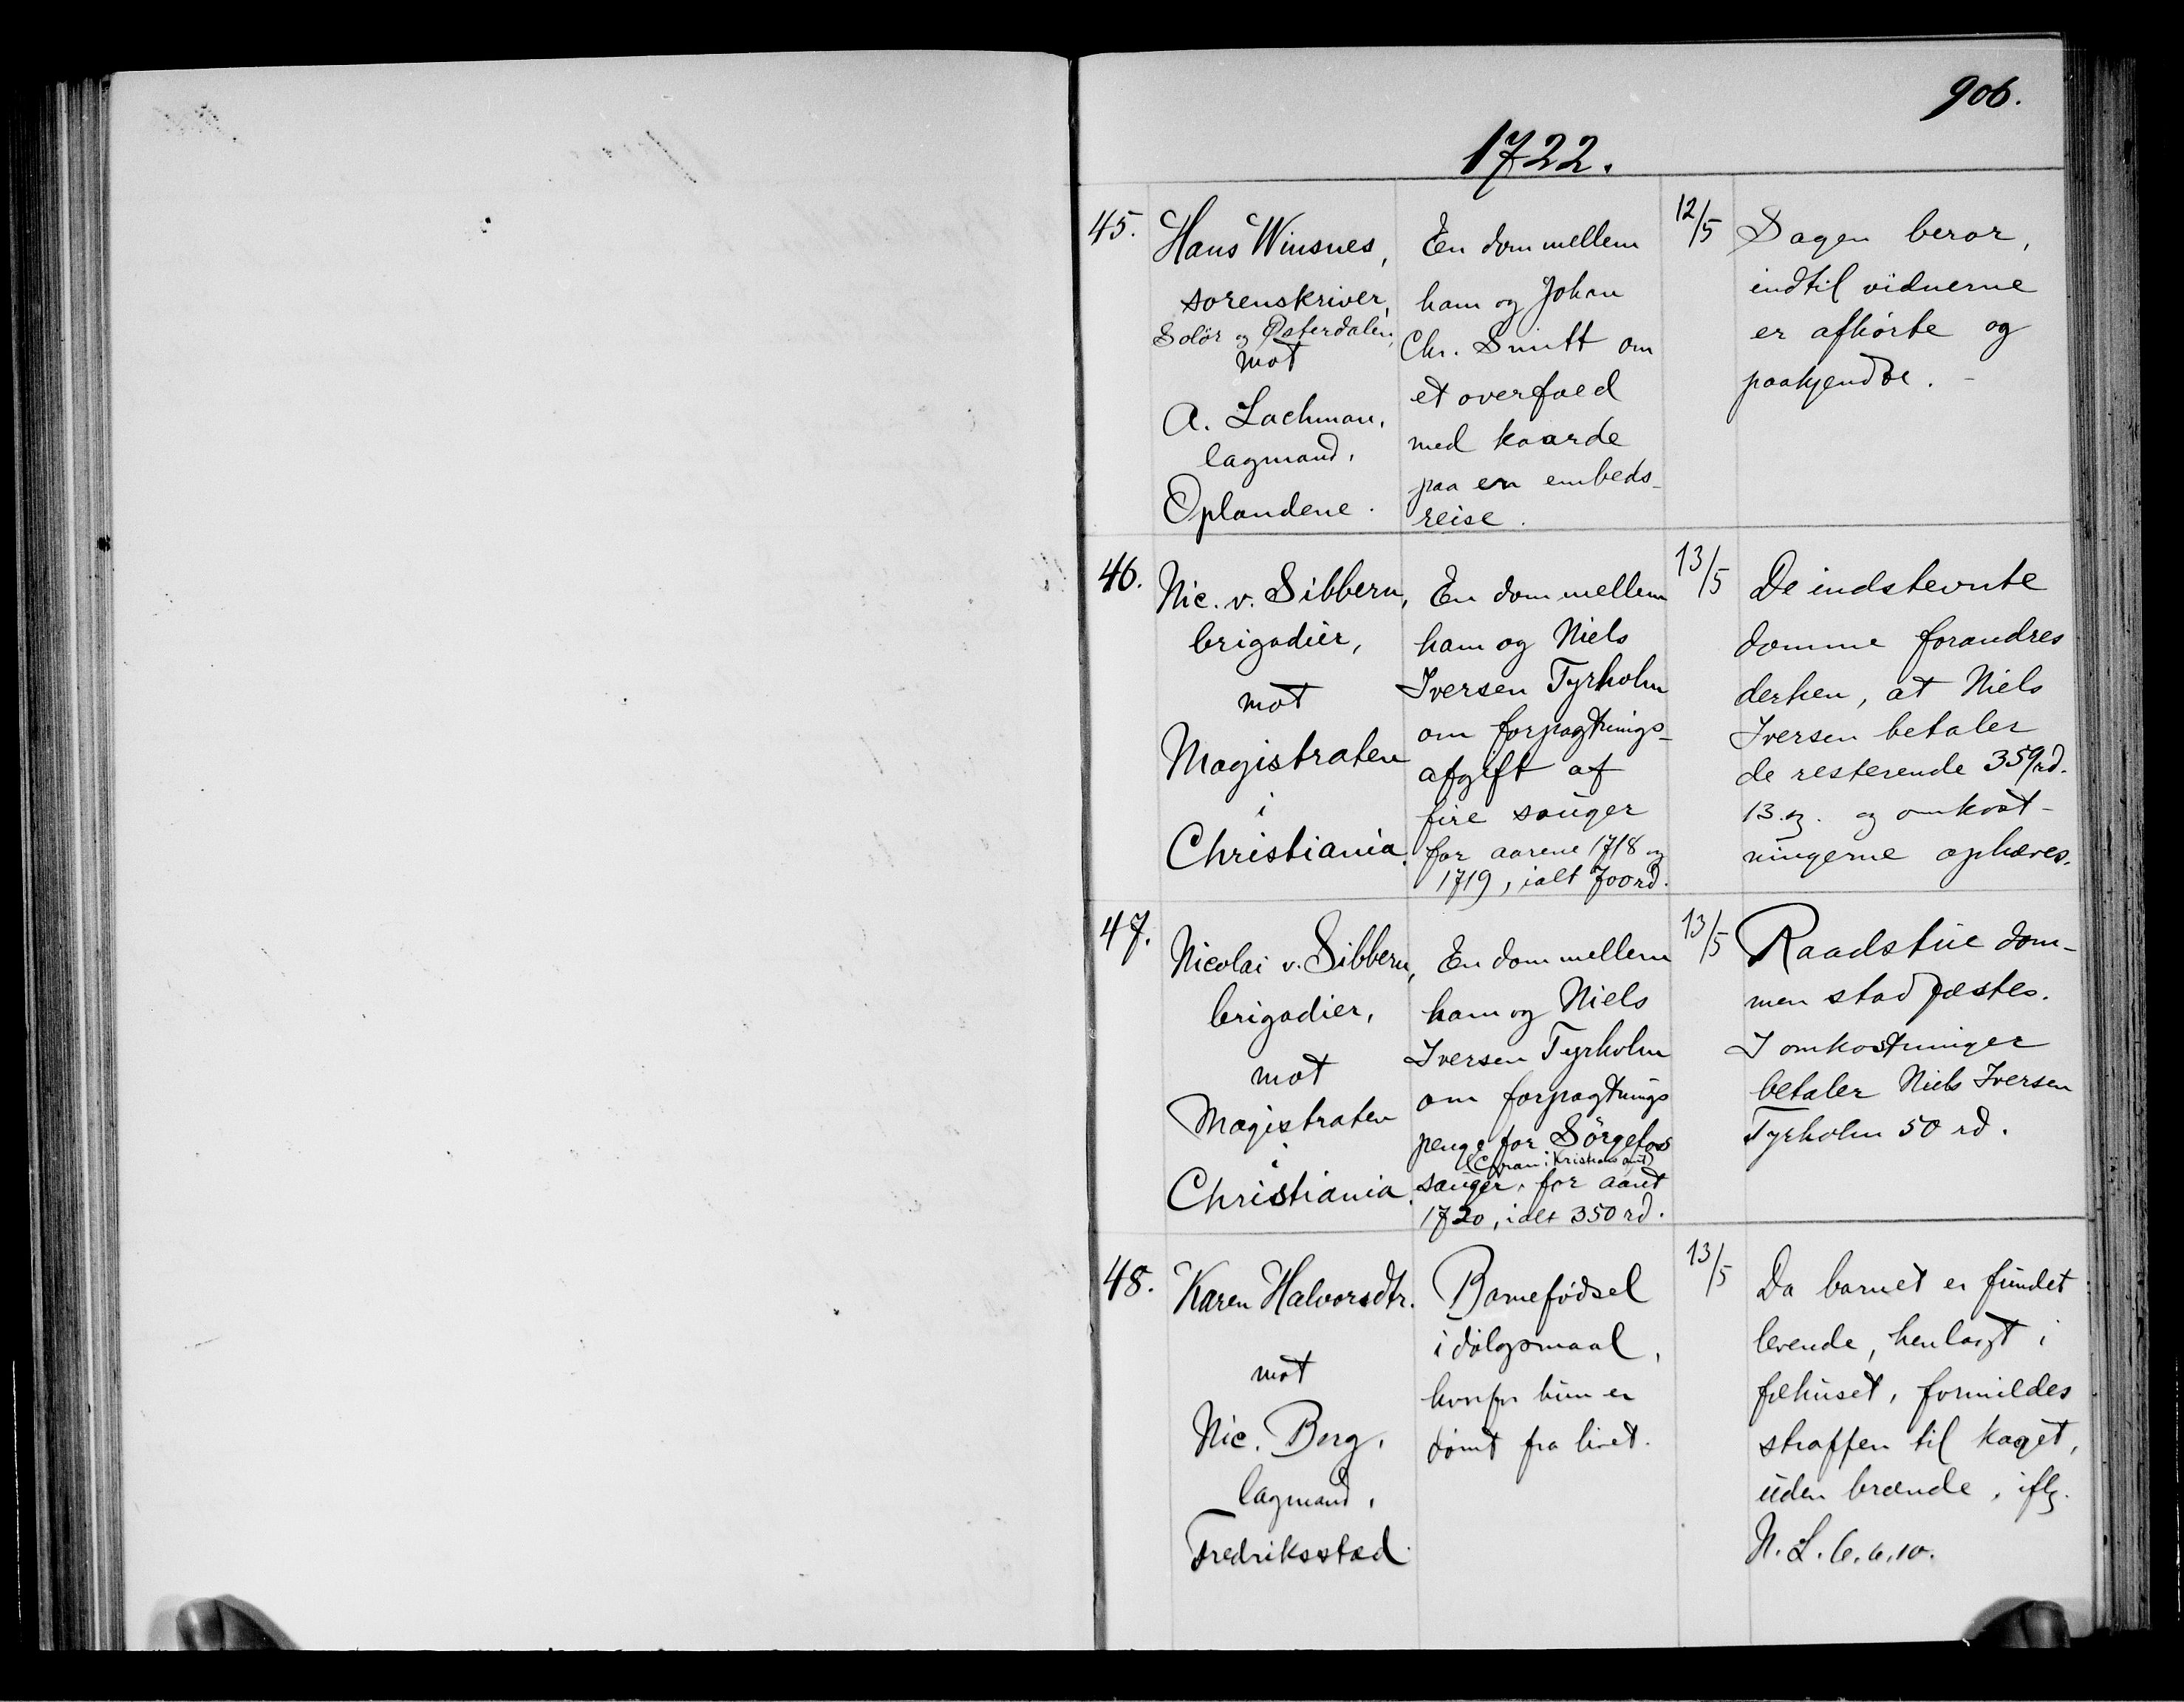 906.
1722.
45.
Hans Winsnes,
sorenskriver,
Solør og Østerdalen,
mot
A. Lachman,
lagmand,
Oplandene.
En dom mellem
ham og Johan
Chr. Smitt om
et overfald
med kaarde
paa en embeds-
reise.
12/5
Sagen beror,
indtil vidnerne
er afhørte og
paakjendte. -
46.
Nic. v. Sibbern,
brigadier,
mot
Magistraten
i
Christiania.
En dom mellem
ham og Niels
Iversen Tyrholm
om forpagtnings-
afgift af
fire sauger
for aarene 1718 og
1719, ialt 700 rd.
13/5
De indstevnte
domme forandres
derhen, at Niels
Iversen betaler
de resterende 359 rd.
13. og omkost-
ningerne ophæves.
47.
Nicolai v. Sibbern,
brigadier,
mot
Magistraten
i
Christiania.
En dom mellem
ham og Niels
Iversen Tyrholm
om forpagtnings
penge for Sørgefos
i Kristians amt)
sauger, for aaret
1720, ialt 350 rd.
13/5
Raadstue dom-
men stadfæstes.
I omkostninger
betaler Niels Iversen
Tyrholm 50 rd.
48.
Karen Halvorsdtr.
mot
Nic. Borg,
lagmand,
Fredriksstad.
Barnefødsel
i dølgsmaal,
hvorfor hun er
dømt fra livet.
13/5
Da barnet er fundet
levende, henlagt i
fæhuset, formildes
straffen til kaget,
uden brænde, iflg.
N. L. 6.6.10.